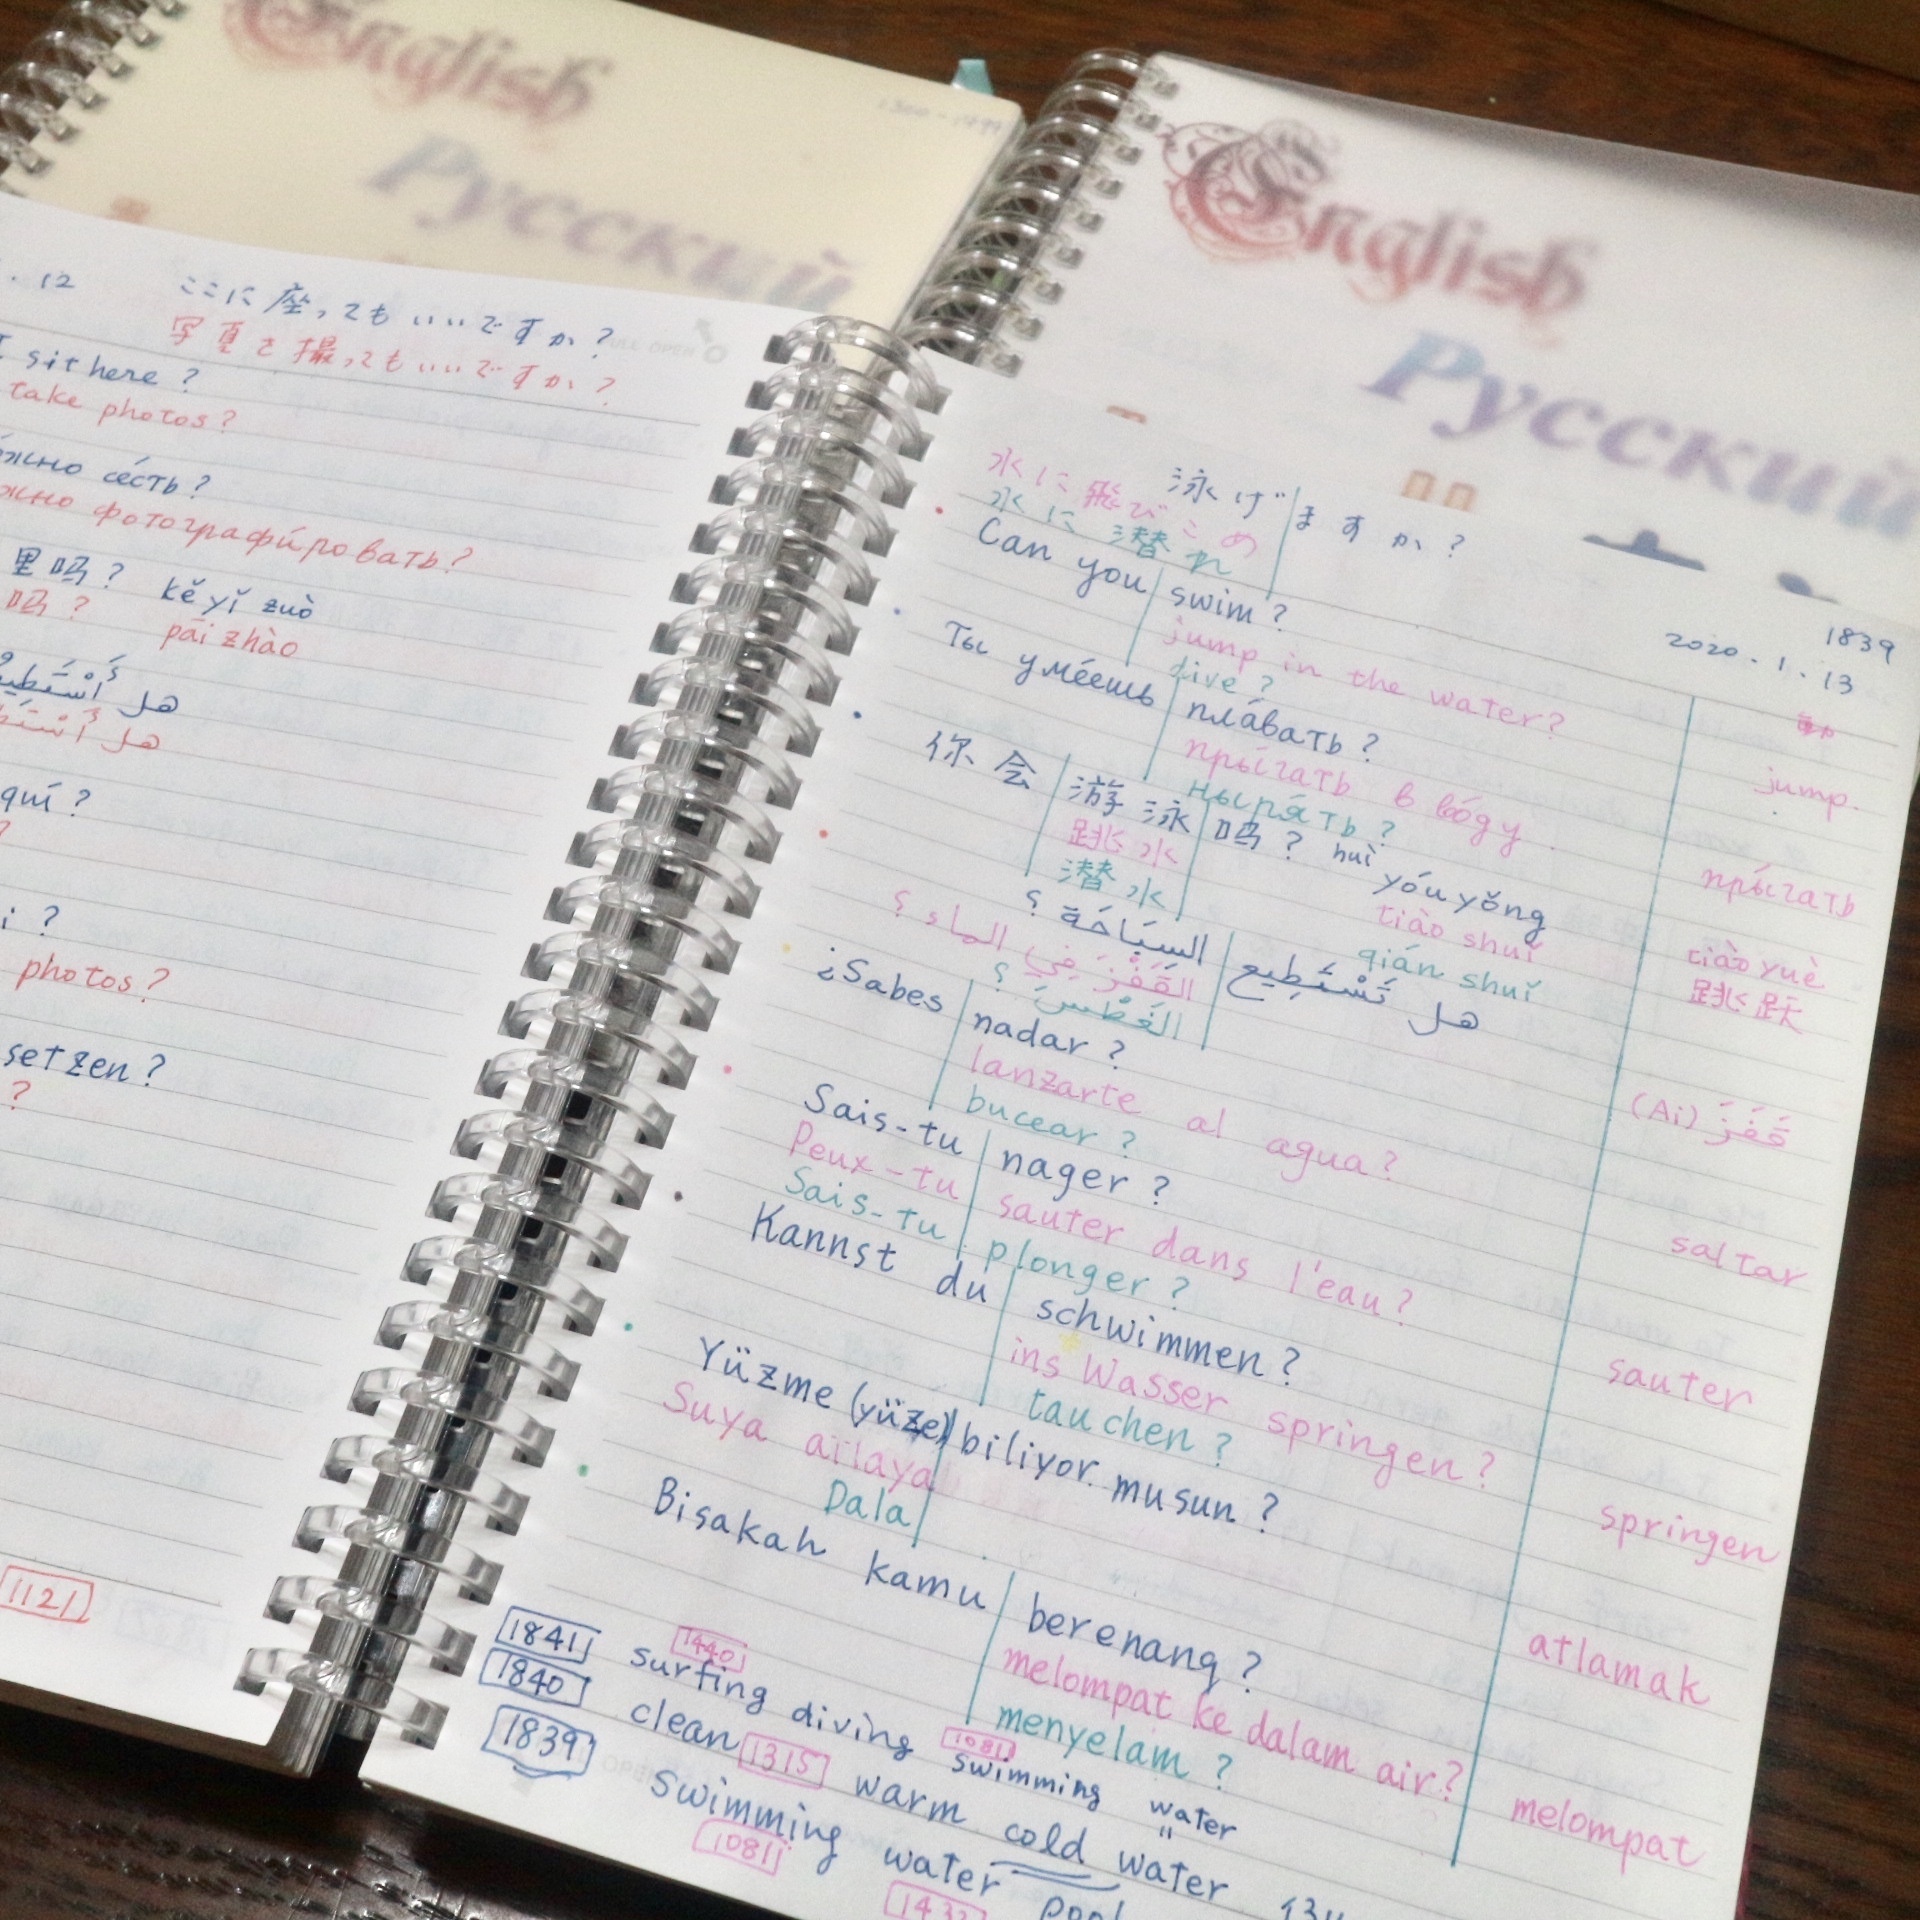 English
Русский
English
Русский
. 12
ここに座ってもいいですか?
写真を撮ってもいいですか?
sit here ?
take photos ?
сéсть ?
фотографи́ровать ?
里吗 ? kě yǐ zuò
吗 ? pāi zhào
هل أَسْتَطِيعُ
هل
?
?
i ?
photos ?
setzen ?
?
1121
1839
2020.1.13
泳げ ますか ?
水に飛びこめ
水に潜れ
Can you swim ?
jump in the water ?
dive ?
jump.
Ты умéешь плáвать ?
пры́гать в вóду
ныря́ть ?
пры́гать
你会 游泳 吗 ? huì yóu yǒng
跳水 tiào shuǐ
潜水 qián shuǐ
tiào yuè
跳跃
هل تَسْتَطِيع السِّبَاحَة ؟
القَفْزَ فِي الماء ؟
الغَطْسَ ؟
(Ai) قَفَزَ
¿Sabes nadar ?
lanzarte al agua ?
bucear ?
saltar
Sais-tu nager ?
Peux-tu sauter dans l'eau ?
Sais-tu plonger ?
sauter
Kannst du schwimmen ?
ins Wasser springen ?
tauchen ?
springen
Yüzme (yüze) biliyor musun ?
Suya atlaya
Dala
atlamak
Bisakah kamu berenang ?
melompat ke dalam air ?
menyelam ?
melompat
1440
1841 surfing diving swimming water
1081
1840 clean 1315 warm cold water
1839 swimming water pool
1081